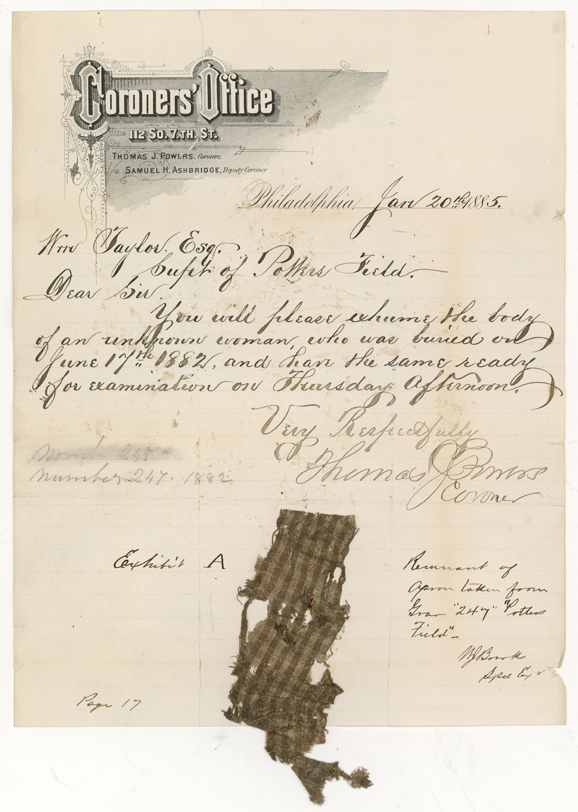 Coroners' Office
112 So. 7.th. St.
Thomas J. Powers, Coroner,
Samuel H. Ashbridge, Deputy Coroner
Philadelphia Jan 20th 1885.
Wm Taylor. Esq.
Supt of Potters Field.
Dear Sir.
You will please exhume the body
of an unknown woman, who was buried on
June 17th 1882, and have the same ready
for examination on Thursday afternoon.
Very Respectfully
Thomas J Powers
Coroner
247
Number 247. 1882
Exhibit A
Remnant of
Apron taken from
Grave "247" "Potters
Field"
Page 17